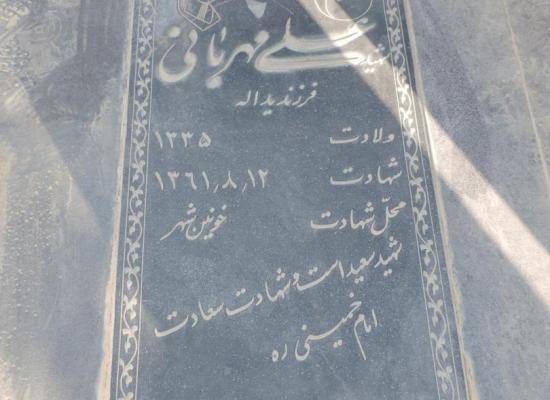 شهید علی مهربانی
فرزند یداله
ولادت ۱۳۳۵
شهادت ۱۳۶۱٫۸٫۱۲
محل شهادت خونین شهر
شهید سعید است و شهادت سعادت
امام خمینی ره